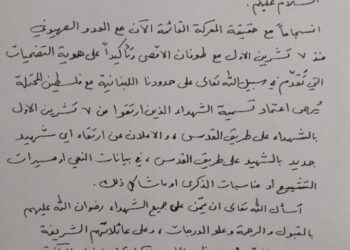 السلام عليكم.
انسجاماً مع حقيقة المعركة القائمة الآن مع العدو الصهيوني
منذ ٧ تشرين الأول مع طوفان الأقصى وتأكيداً على هوية التضحيات
التي تُقدّم في سبيل الله تعالى على حدودنا اللبنانية مع فلسطين المحتلة
يُرجى اعتماد تسمية الشهداء الذين ارتقوا من ٧ تشرين الأول
بالشهداء على طريق القدس، والاعلان عن ارتقاء أي شهيد
جديد بالشهيد على طريق القدس، في بيانات النعي أو مسيرات
التشييع أو مناسبات الذكرى أو ما شاكل ذلك.
أسأل الله تعالى ان يمنّ على جميع الشهداء رضوان الله عليهم
بالقبول والرحمة وعلو الدرجات، وعلى عائلاتهم الشريفة